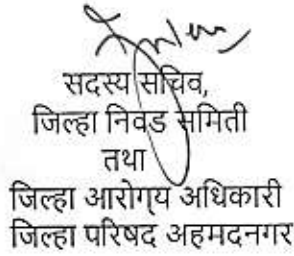 सदस्य सचिव,
जिल्हा निवड समिती
तथा
जिल्हा आरोग्य अधिकारी
जिल्हा परिषद अहमदनगर